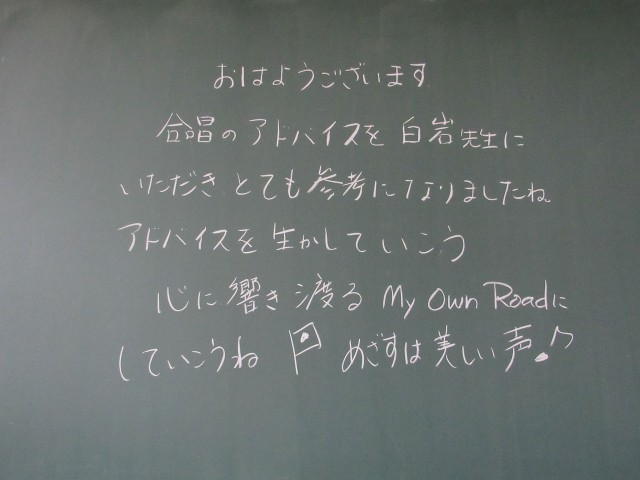 おはようございます
合唱のアドバイスを白岩先生に
いただきとても参考になりましたね。
アドバイスを生かしていこう
心に響き渡る My Own Roadに
していこうね めざすは美しい声♪